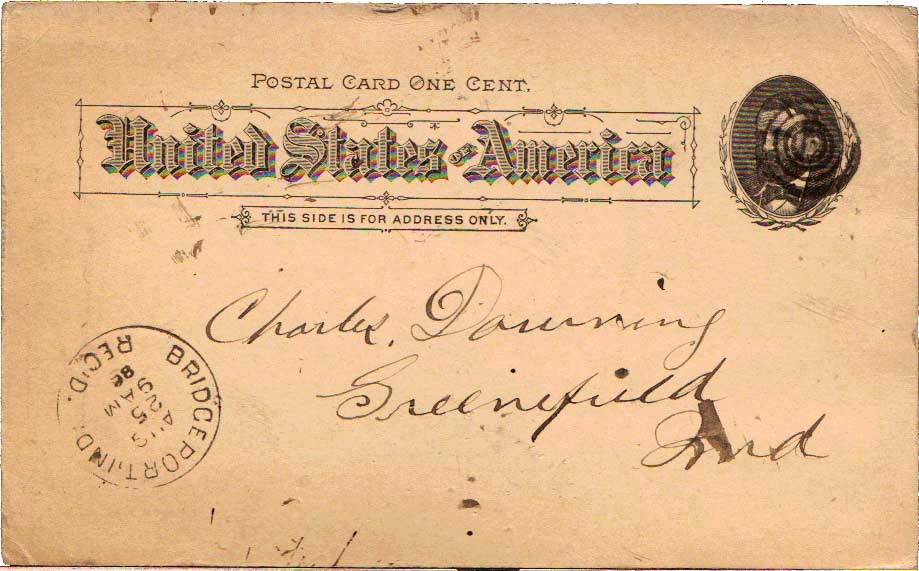 POSTAL CARD ONE CENT.
United States of America
THIS SIDE IS FOR ADDRESS ONLY.
Charles. Downing
Greenefield
Ind
BRIDGEPORT, IND.
REC'D.
AM